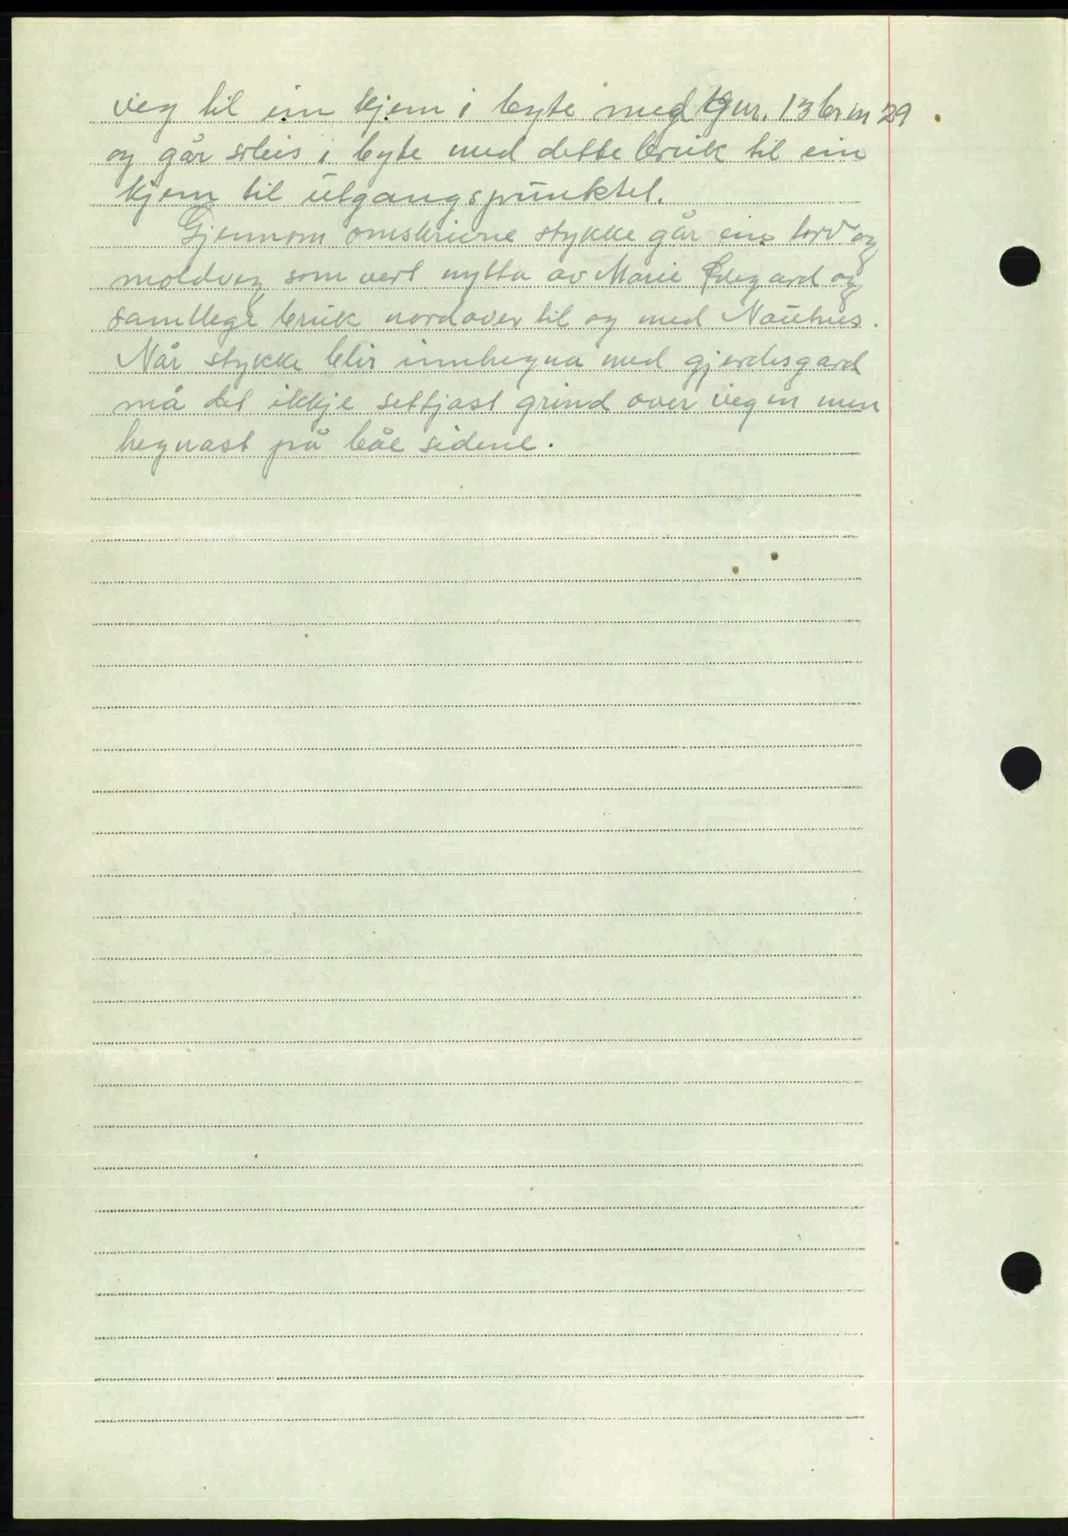 veg til ein kjem i byte med gnr. 13 br nr 29
og går soleis i byte med dette bruk til ein
kjem til utgangspunktet.
Gjennom omskrivne stykke går ein torv og
moldveg som vert nytta av Marie Ødegard og
samtlege bruk nordover til og med Nauthus.
Når stykke blir innhegna med gjerdesgard
må det ikkje setjast grind over vegen men
hegnast på båe sidene.